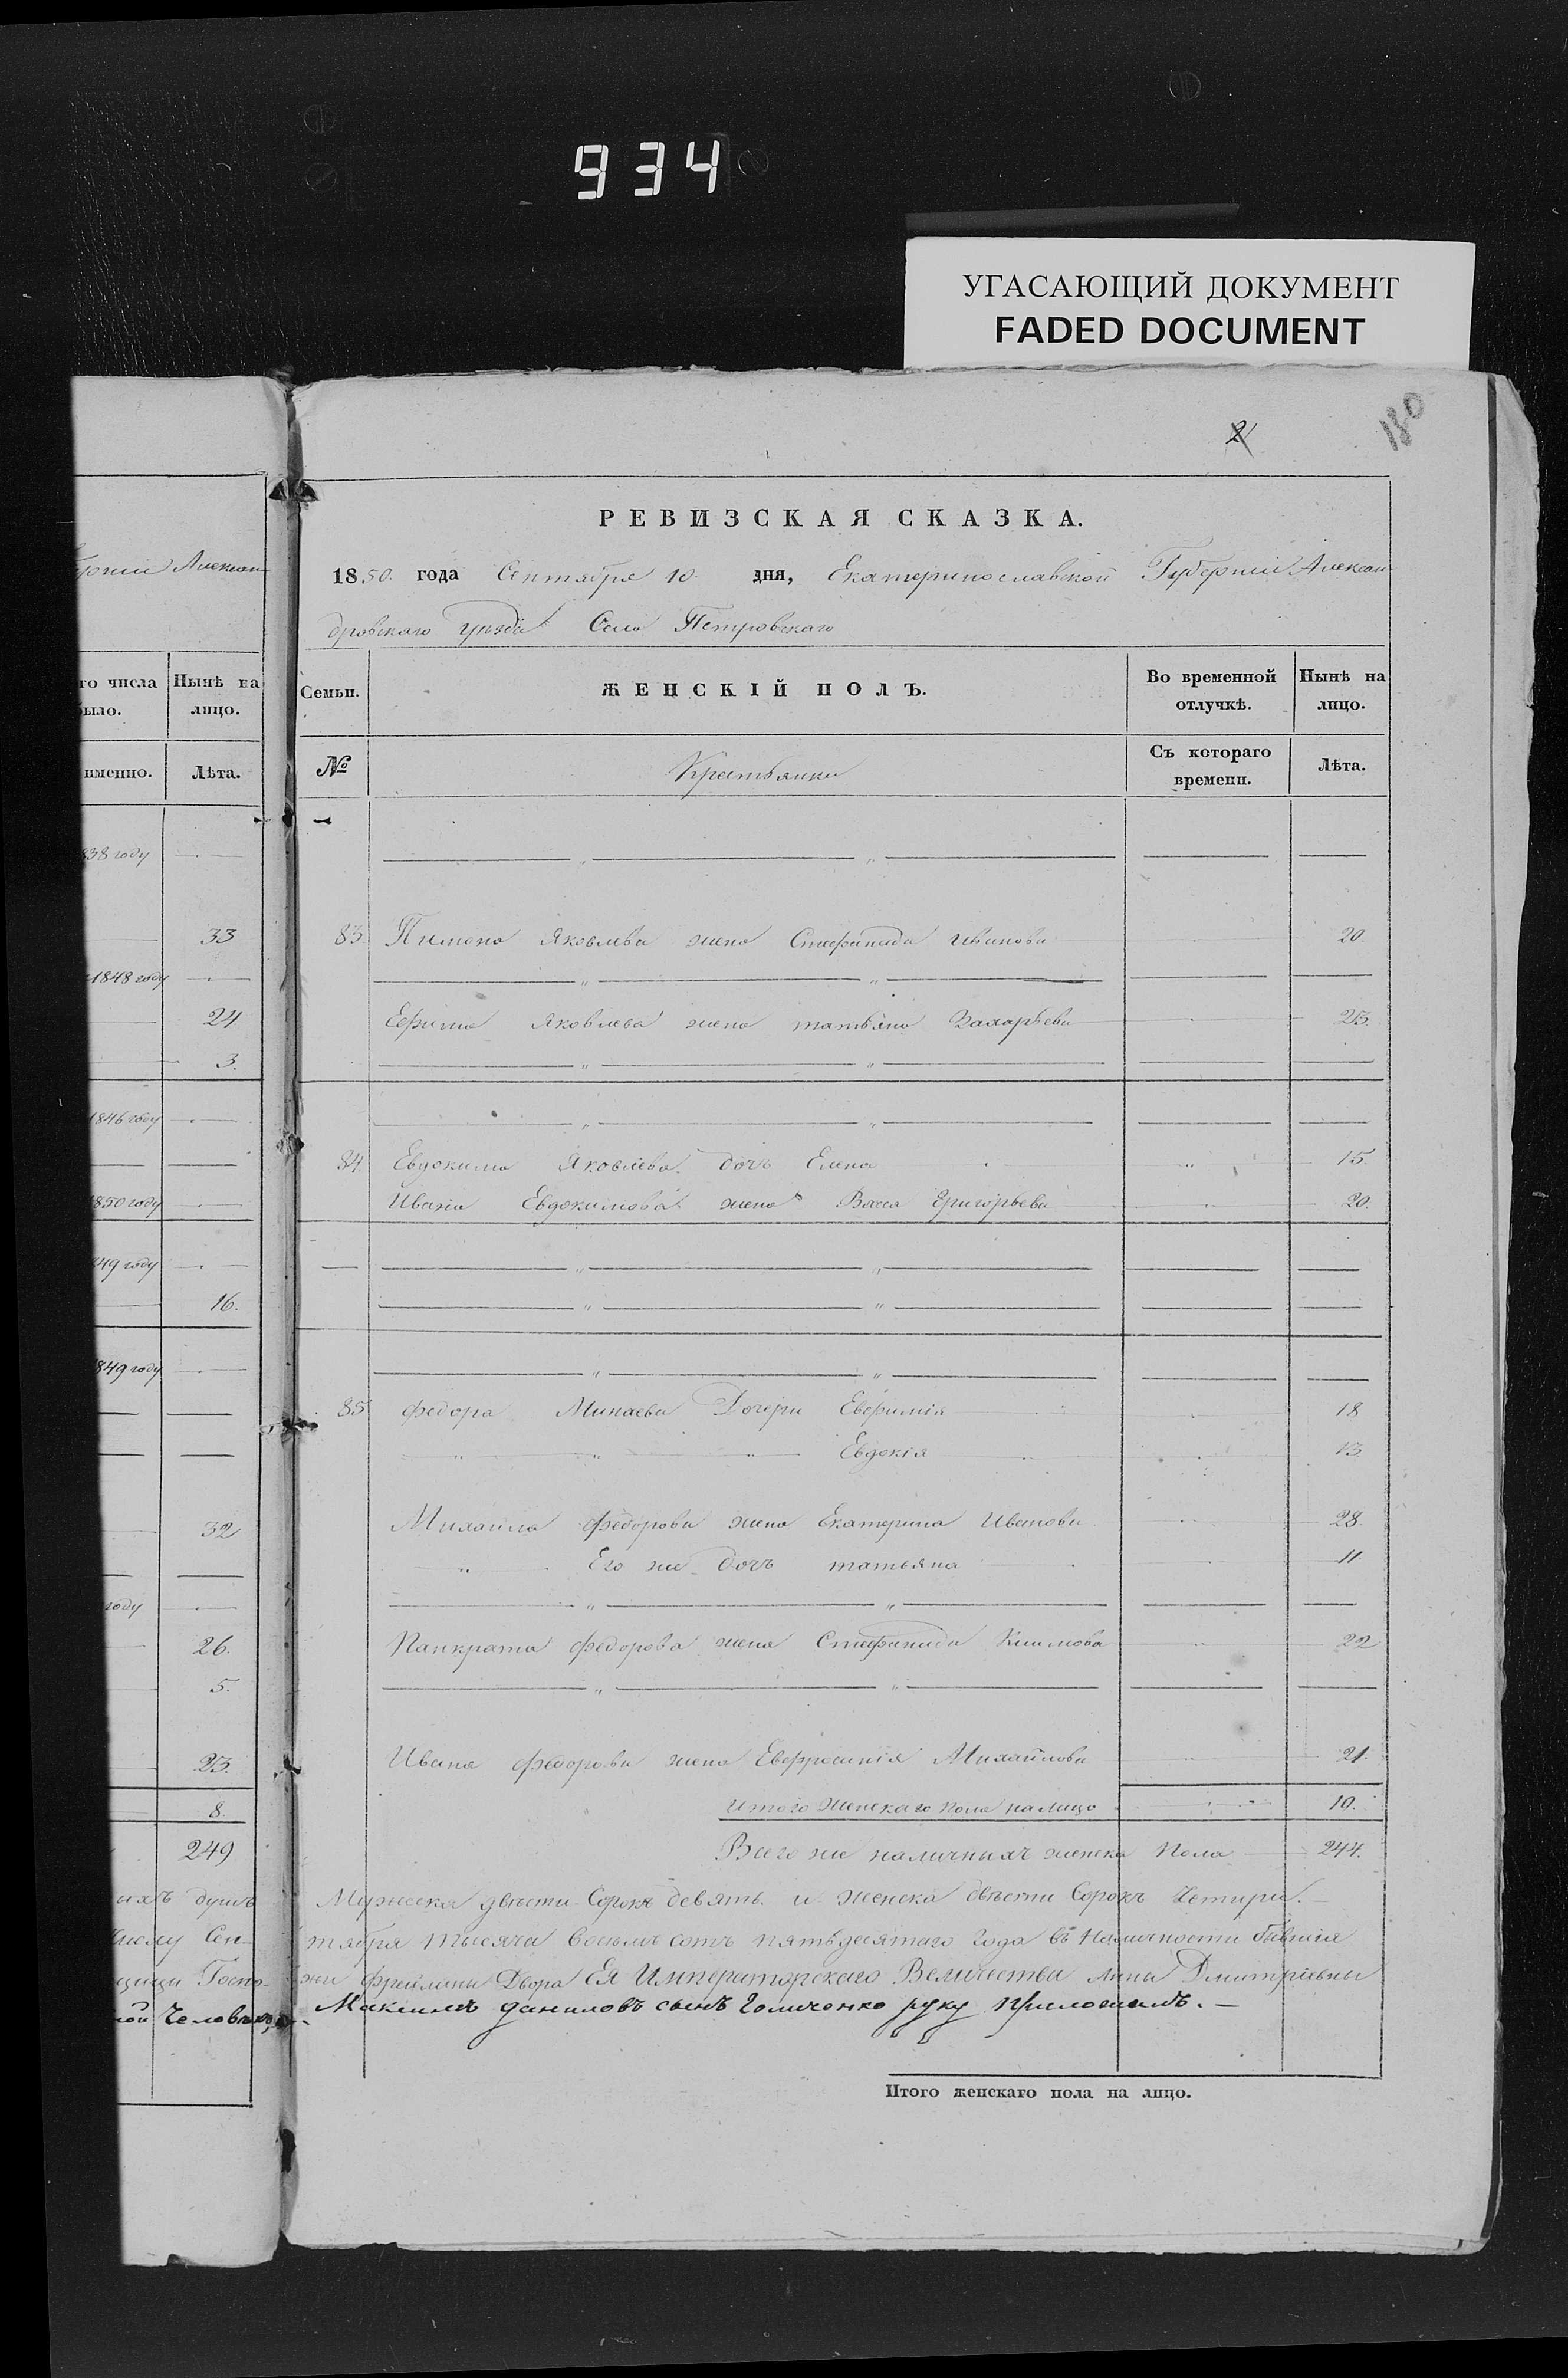 934
УГАСАЮЩИЙ ДОКУМЕНТ
FADED DOCUMENT
180
2
РЕВИЗСКАЯ СКАЗКА.
1850. года Сентября 10 дня, Екатеринославской Губерніи Алексан
дровскаго уѣзда Села Петровскаго
Семьи. ЖЕНСКІЙ ПОЛЪ. Во временной отлучкѣ. Нынѣ на лицо.
№ Крестьянки Съ котораго времени. Лѣта.
83 Пимена Яковлева жена Стефанида Иванова 20.
Ефима Яковлева жена татьяна Захарьева 25.
84 Евдокима Яковлева дочь Елена 15.
Ивана Евдокимова жена Васса Григорьева 20.
85 федора Минаева Дочери Евфимія 18
Евдокія 13
Михаила Федорова жена Екатерина Иванова 28.
Его же дочь татьяна 11.
Панкрата Федорова жена Стефанида Климова 22
Ивана Федорова жена Евфросинія Михайлова 21.
итого женскаго пола налицо 10.
Всего же наличныхъ женска Пола 244.
Мужеска двѣсти Сорокъ девять и женска двѣсти Сорокъ Четыри.
тября тысяча восемь сотъ пятьдесятаго года въ Наличности бывшія
жи фрейлины Двора Ея Императорскаго Величества Анны Дмитріевны
Максимъ даниловъ сынъ Голиченко руку приложилъ.
Итого женскаго пола на лицо.
губерніи Алексан
го числа было. Нынѣ на лицо.
именно. Лѣта.
838 году
33
1848 году
24
3.
1846 году
850 году
49 году
16.
849 году
32
году
26.
5.
23.
8.
249
ихъ душъ
Сен-
Госпо-
Человѣкъ,